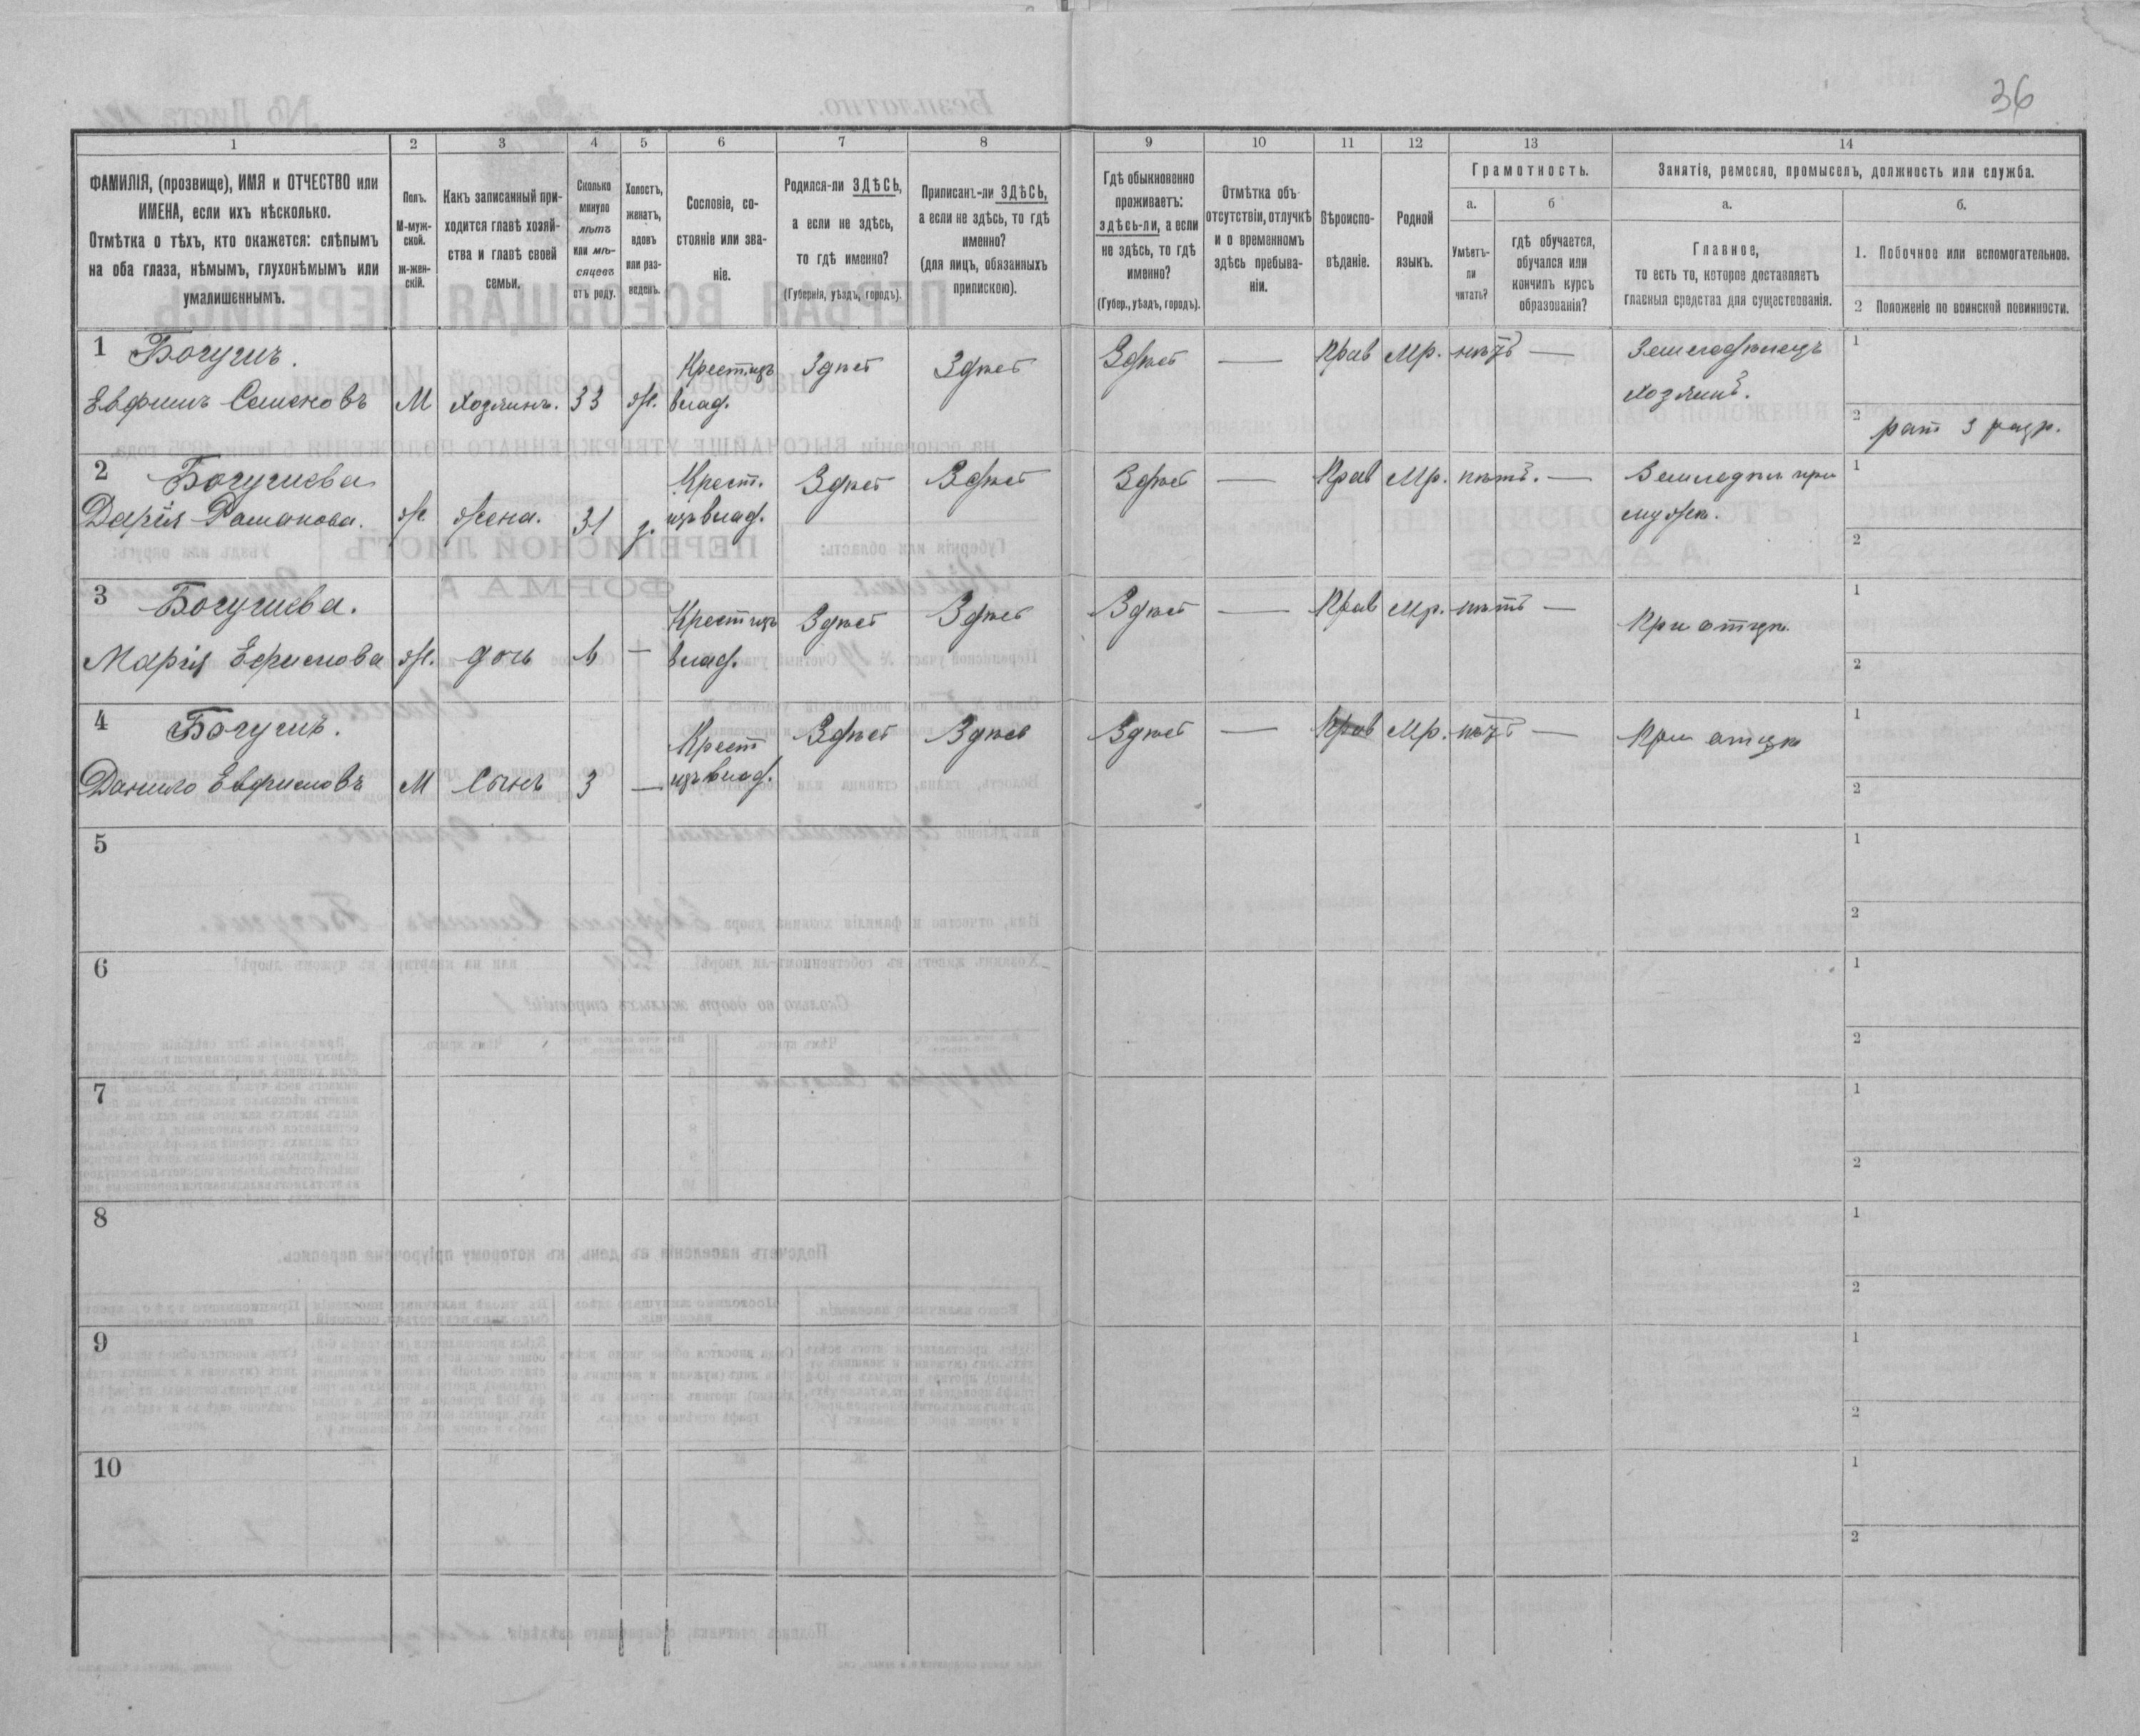 36
1 2 3 4 5 6 7 8 9 10 11 12 13 14
ФАМИЛІЯ, (прозвище), ИМЯ и ОТЧЕСТВО или
ИМЕНА, если ихъ нѣсколько.
Отмѣтка о тѣхъ, кто окажется: слѣпымъ
на оба глаза, нѣмымъ, глухонѣмымъ или
умалишеннымъ.
Полъ.
М-муж-
ской.
ж-жен-
скій.
Какъ записанный при-
ходится главѣ хозяй-
ства и главѣ своей
семьи.
Сколько
минуло
лѣтъ
или мѣ-
сяцевъ
отъ роду.
Холостъ,
женатъ,
вдовъ
или раз-
веденъ.
Сословіе, со-
стояніе или зва-
ніе.
Родился-ли ЗДѢСЬ,
а если не здѣсь,
то гдѣ именно?
(Губернія, уѣздъ, городъ).
Приписанъ-ли ЗДѢСЬ,
а если не здѣсь, то гдѣ
именно?
(для лицъ, обязанныхъ
припискою).
Гдѣ обыкновенно
проживаетъ:
здѣсь-ли, а если
не здѣсь, то гдѣ
именно?
(Губер., уѣздъ, городъ).
Отмѣтка объ
отсутствіи, отлучкѣ
и о временномъ
здѣсь пребыва-
ніи.
Вѣроиспо-
вѣданіе.
Родной
языкъ.
Грамотность.
а.
Умѣетъ-
ли
читать?
б
гдѣ обучается,
обучался или
кончилъ курсъ
образованія?
Занятіе, ремесло, промыселъ, должность или служба.
а.
Главное,
то есть то, которое доставляетъ
главныя средства для существованія.
б.
1. Побочное или вспомогательное.
2 Положеніе по воинской повинности.
1 Богушъ. Крест.изъ Здѣсь Здѣсь Здѣсь — Прав Мр. нѣтъ — Земледѣлецъ 1
Евфимъ Семеновъ М Хозяинъ. 33 ж. влад. хозяинъ.
2 рат 3 разр.
2 Богушева Крест. Здѣсь Здѣсь Здѣсь — Прав Мр. нѣтъ. — Земледѣл при 1
Дарія Романова. ж жена. 31 з. изъ влад. мужѣ.
2
3 Богушева. Крест изъ Здѣсь Здѣсь Здѣсь — Прав Мр. нѣтъ — При отцѣ. 1
Марія Ефимова ж. дочь — влад. 2
4 Богушъ. Крест Здѣсь Здѣсь Здѣсь — Прав Мр. нѣтъ — При отцѣ 1
Данило Евфимовъ М Сынъ 3 — изъ влад. 2
5 1
2
6 1
2
7 1
2
8 1
2
9 1
2
10 1
2